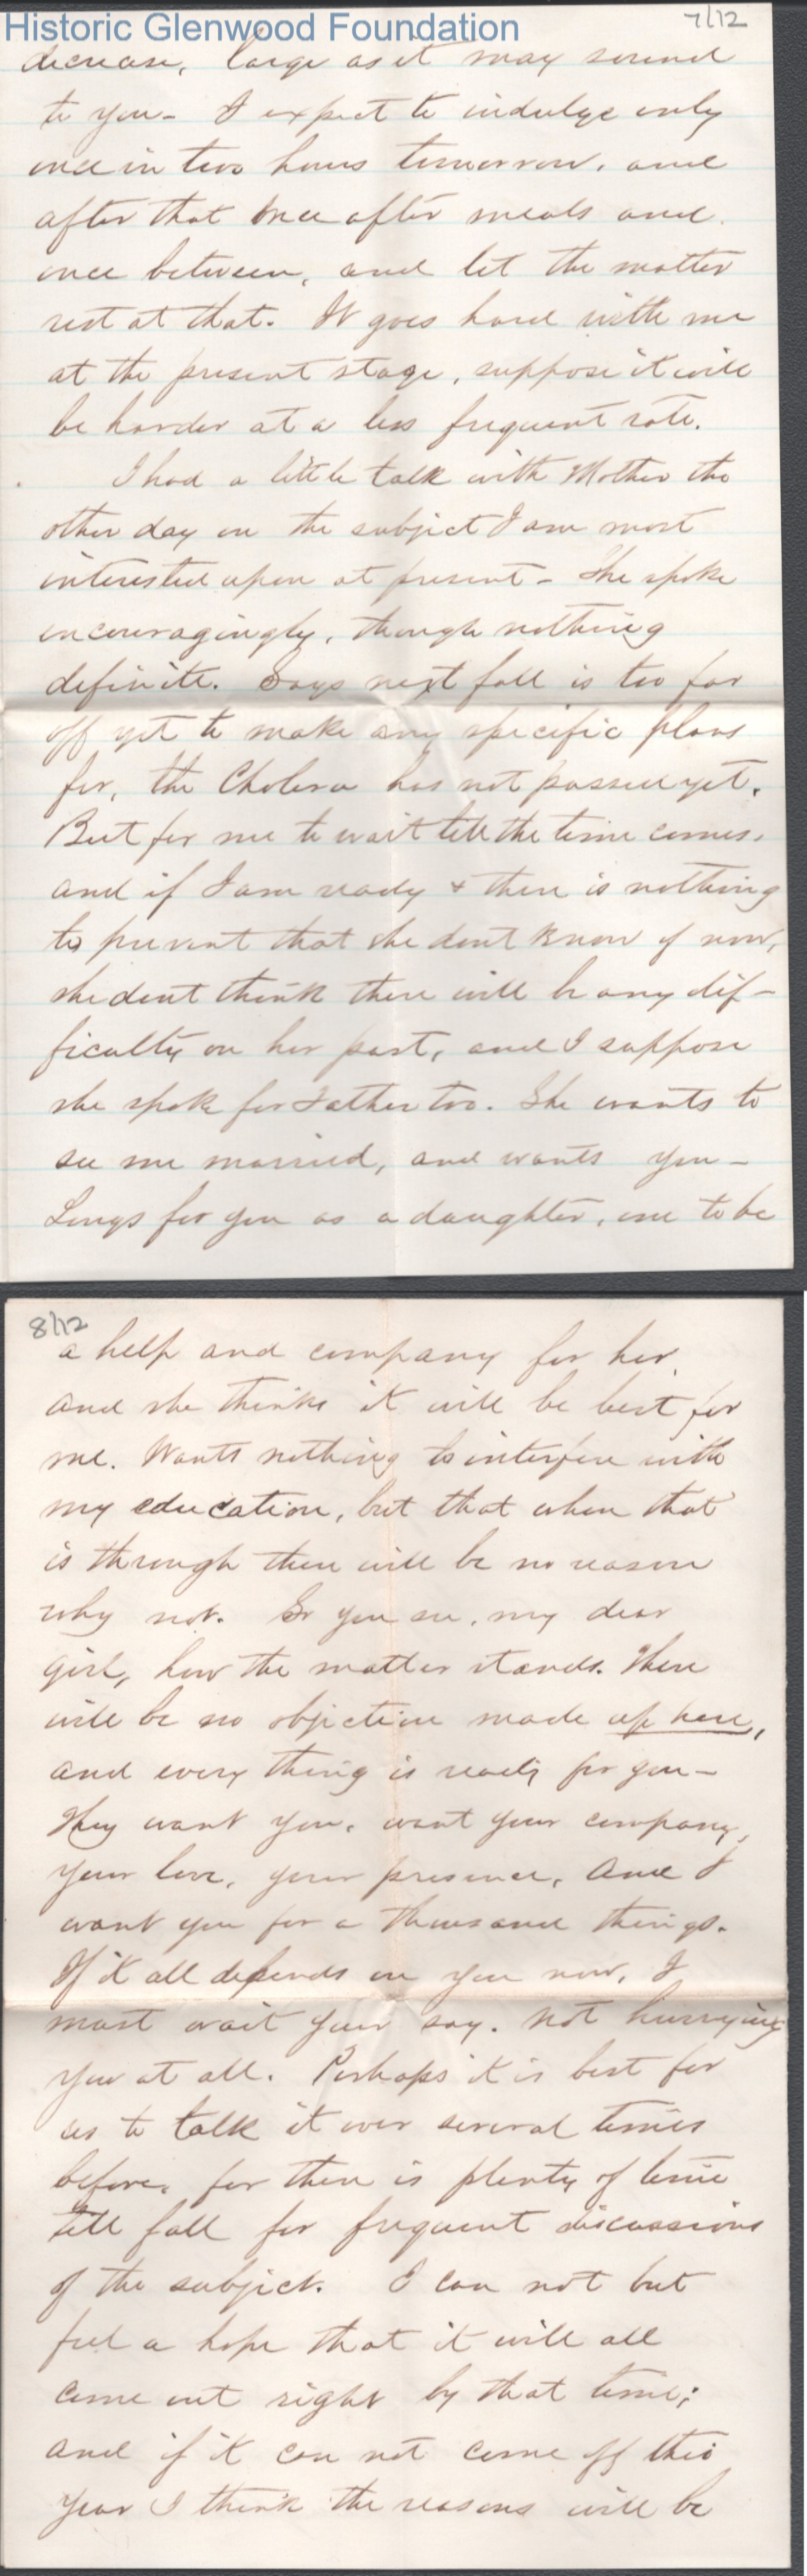 Historic Glenwood Foundation
7/12
decrease, large as it may sound
to you - I expect to indulge only
once in two hours tomorrow, and
after that once after meals and
once between, and let the matter
rest at that. It goes hard with me
at the present stage, suppose it will
be harder at a less frequent rate.
I had a little talk with Mother the
other day on the subject I am most
interested upon at present - She spoke
encouragingly, though nothing
definite. Says next fall is too far
off yet to make any specific plans
for, the Cholera has not passed yet.
But for me to wait till the time comes,
and if I am ready & there is nothing
to prevent that she dont know of now,
she dont think there will be any dif-
ficulty on her part, and I suppose
she spoke for Father too. She wants to
see me married, and wants you -
Longs for you as a daughter, one to be
8/12
a help and company for her,
and she thinks it will be best for
me. Wants nothing to interfere with
my education, but that when that
is through there will be no reason
why not. So you see, my dear
girl, how the matter stands. There
will be no objection made up here,
and every thing is ready for you -
They want you, want your company,
your love, your presence, And I
want you for a thousand things.
If it all depends on you now, I
must wait your say. not hurrying
you at all. Perhaps it is best for
us to talk it over several times
before, for there is plenty of time
till fall for frequent discussions
of the subject. I can not but
feel a hope that it will all
come out right by that time;
and if it can not come off this
year I think the reasons will be